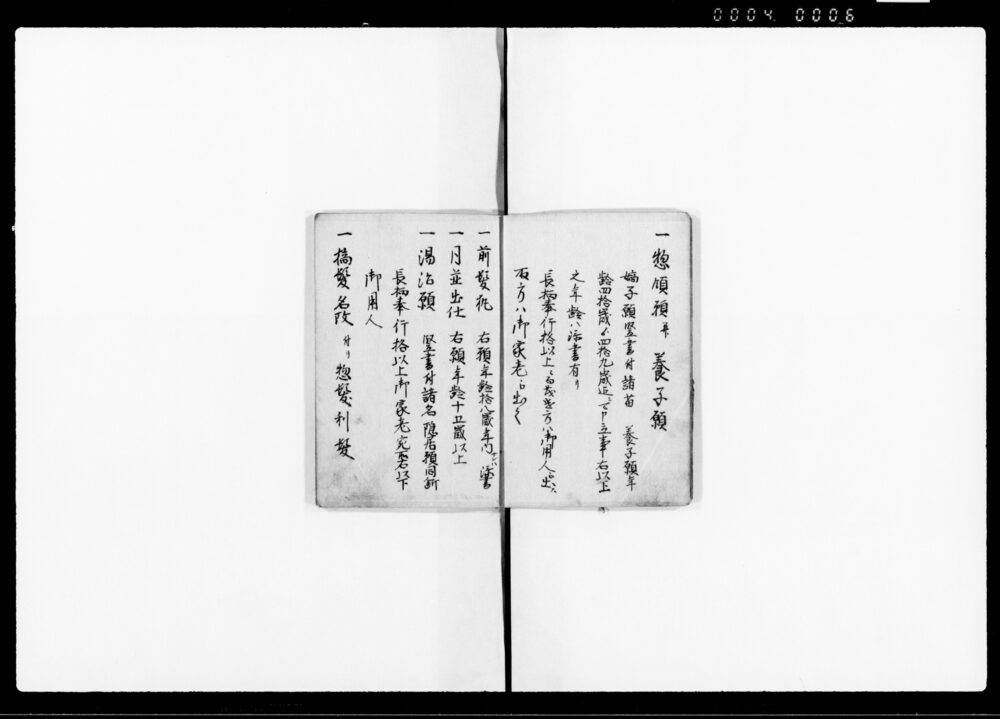 0004 0006
一 惣領願並 養子願
嫡子願竪書付諸苗 養子願年
齢四拾歳ゟ四拾九歳迄 申立事右以上
之年齢ハ添書有り
長柄奉行格以上 方ハ御用人 出
右方ハ御家老ゟ出ル
一 前髪執 右願年齢拾八歳年内 添書
一 月並出仕 右願年齢十五歳以上
一 湯治願 竪書付諸名隠居願同断
長柄奉行格以上御家老宛右以下
御用人
一 髪名改 付り 惣髪剃髪